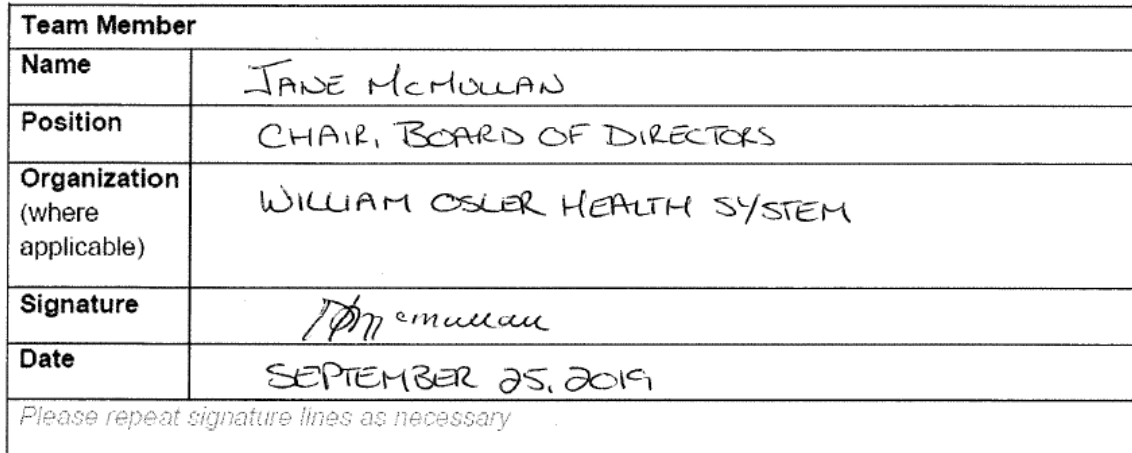 Team Member
Name JANE McMULLAN
Position CHAIR, BOARD OF DIRECTORS
Organization WILLIAM OSLER HEALTH SYSTEM
(where
applicable)
Signature McMullan
Date SEPTEMBER 25, 2019
Please repeat signature lines as necessary